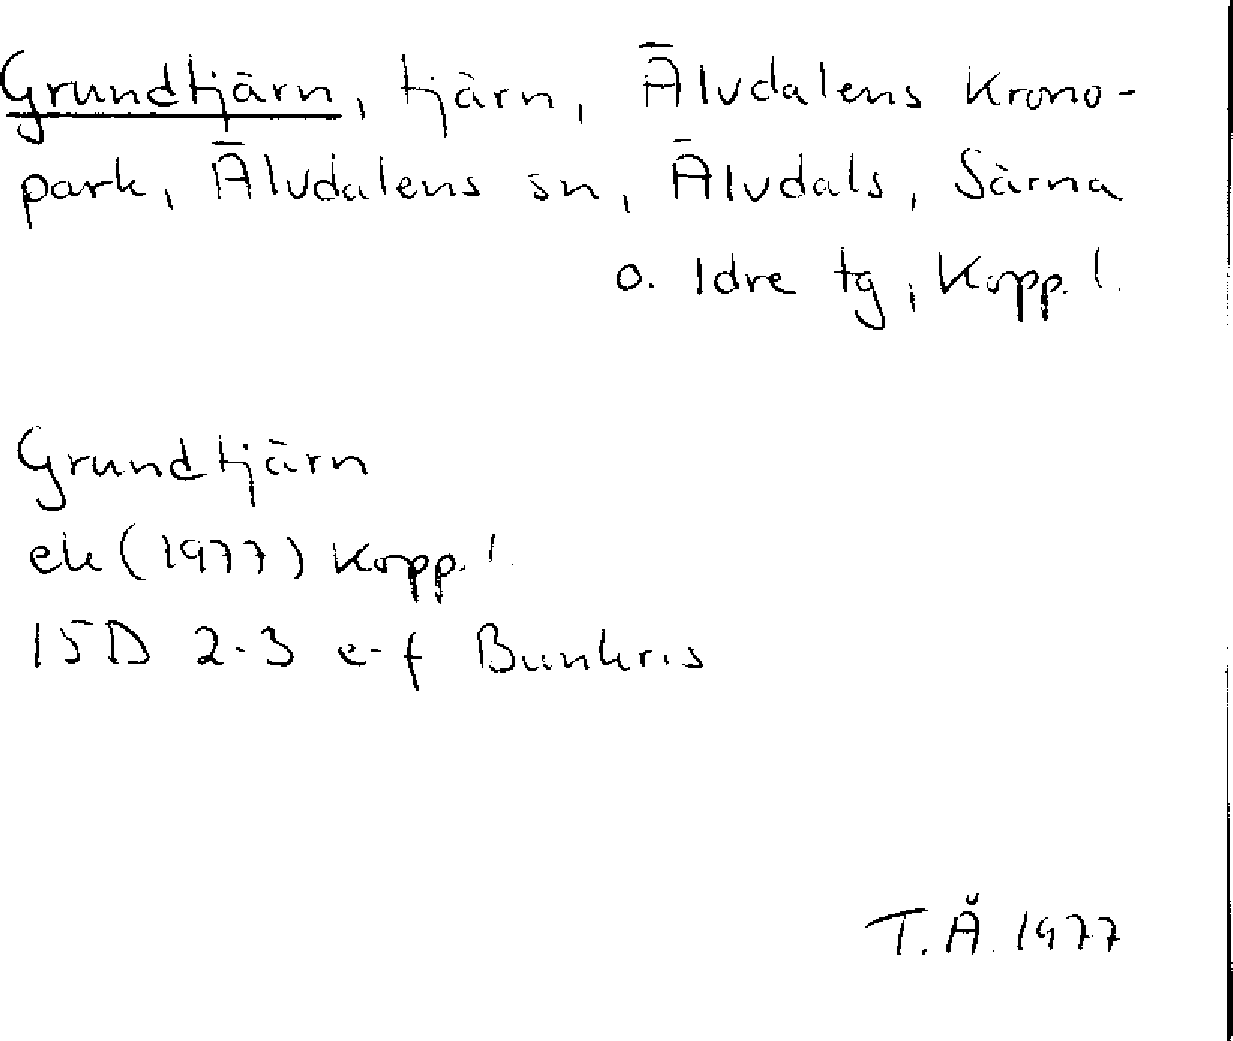 Grundtjärn, tjärn, Älvdalens Krono-
park, Älvdalens sn, Älvdals, Särna
o. Idre tg, Kopp. l.
Grundtjärn
ek (1977) Kopp. l.
15D 2-3 e-f Bunkris
T. Å. 1977